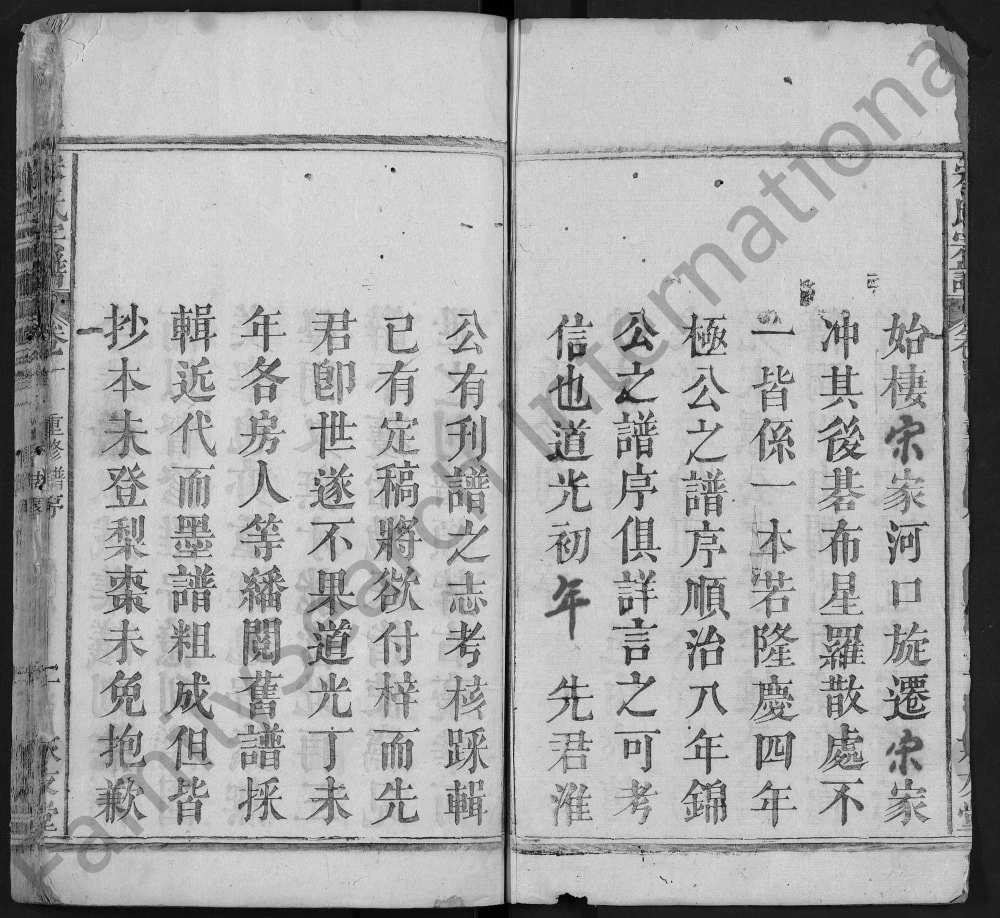 始棲宋家河口旋遷宋家
冲其後碁布星羅散處不
一皆係一本若隆慶四年
極公之譜序順治八年錦
公之譜序俱詳言之可考
信也道光初年 先君淮
公有刊譜之志考核踩輯
已有定稿將欲付梓而先
君卽世遂不果道光丁未
年各房人等繙閱舊譜採
輯近代而墨譜粗成但皆
抄本未登梨棗未免抱歉
氏宗譜
重修譜序
FamilySearch International